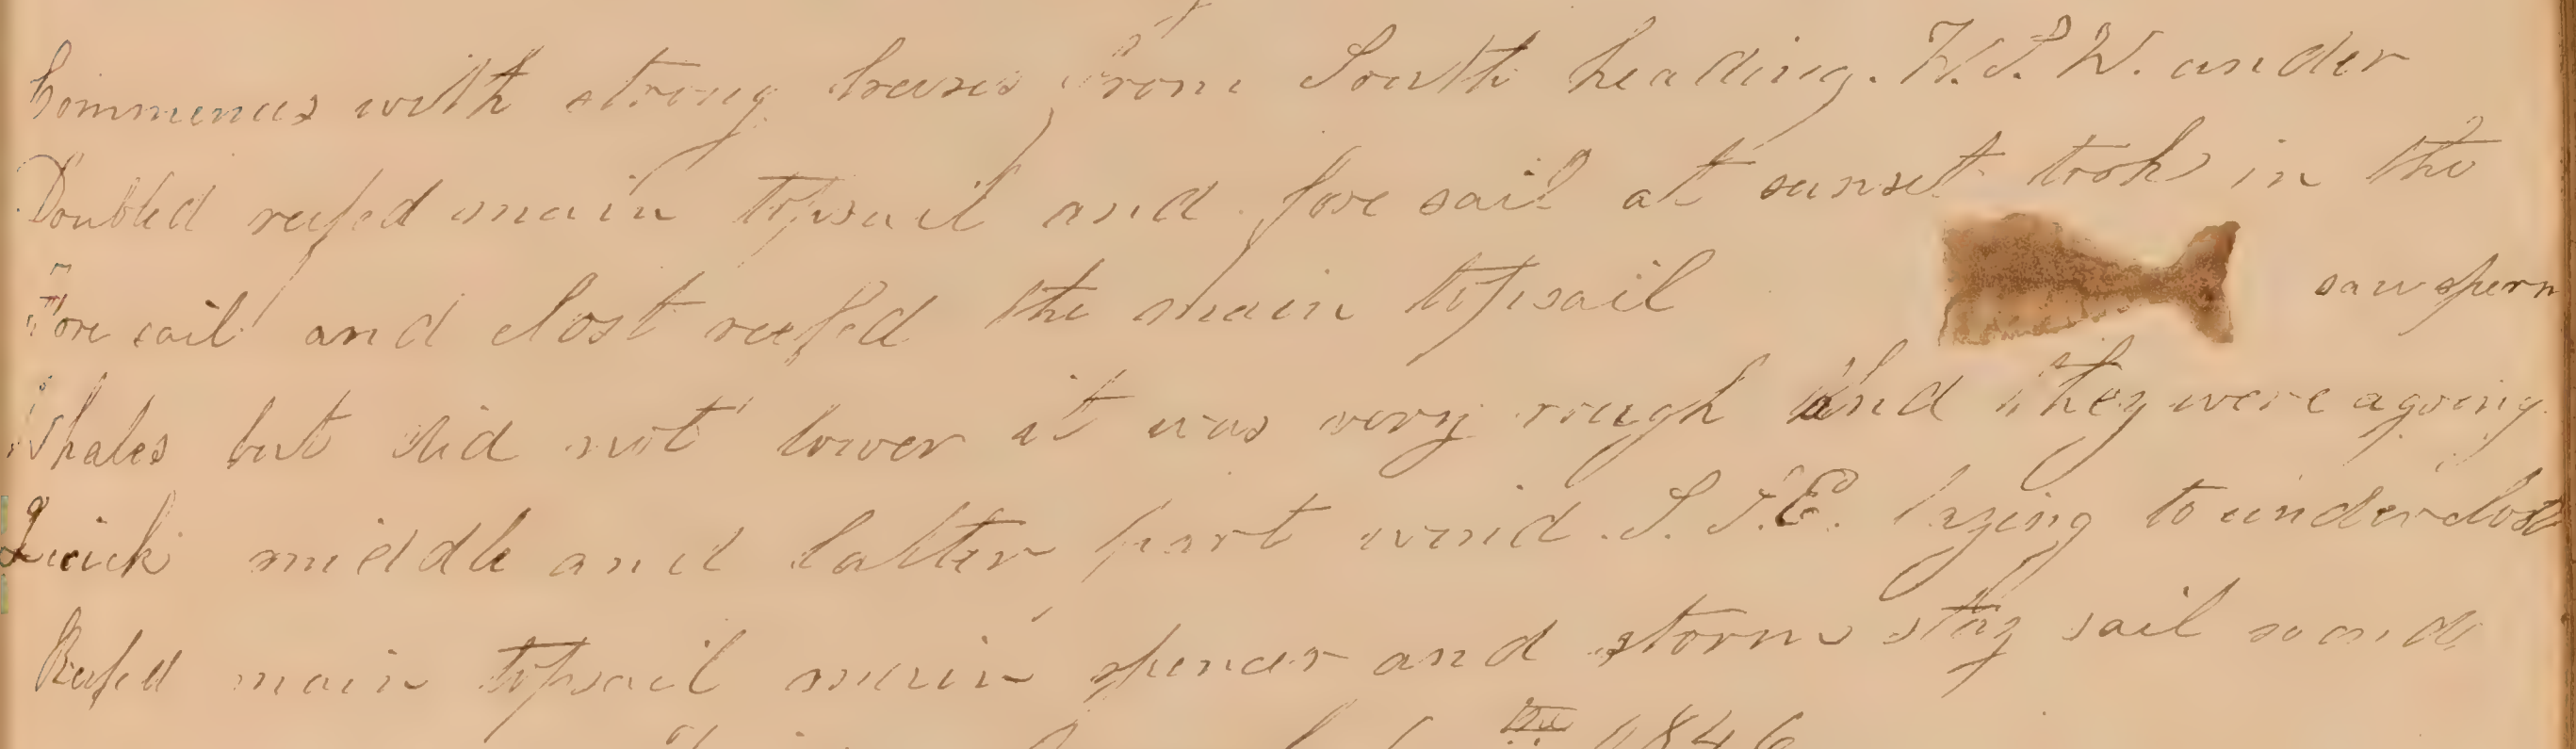 Commences with strong breases from South heading. W.S.W. under
Doubled reefed main topsail and fore sail at sunset took in the
Fore sail and clost reefed the main topsail saw sperm
Whales but did not lower it was very rough and they were agoing
Quick middle and latter part wind S.S.E. laying to under clost
Reefed main topsail main spencer and storm stay sail
1846